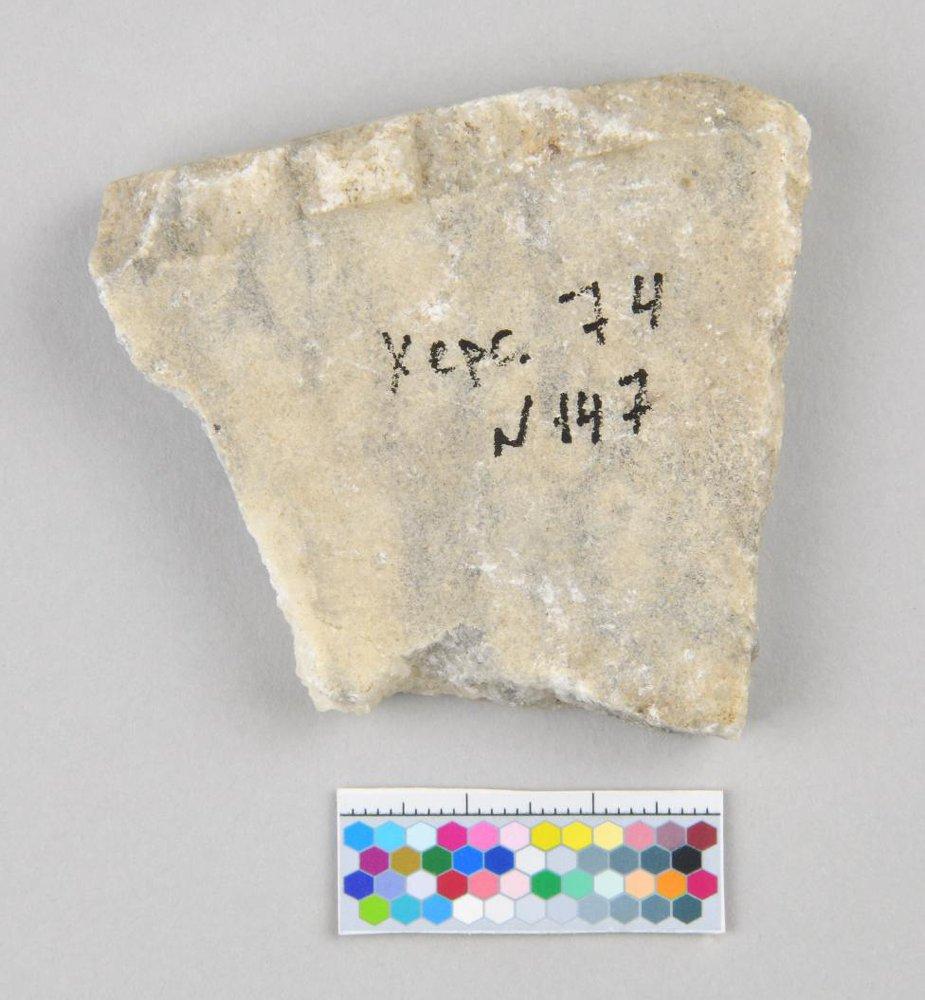 Херс. 74
N 147